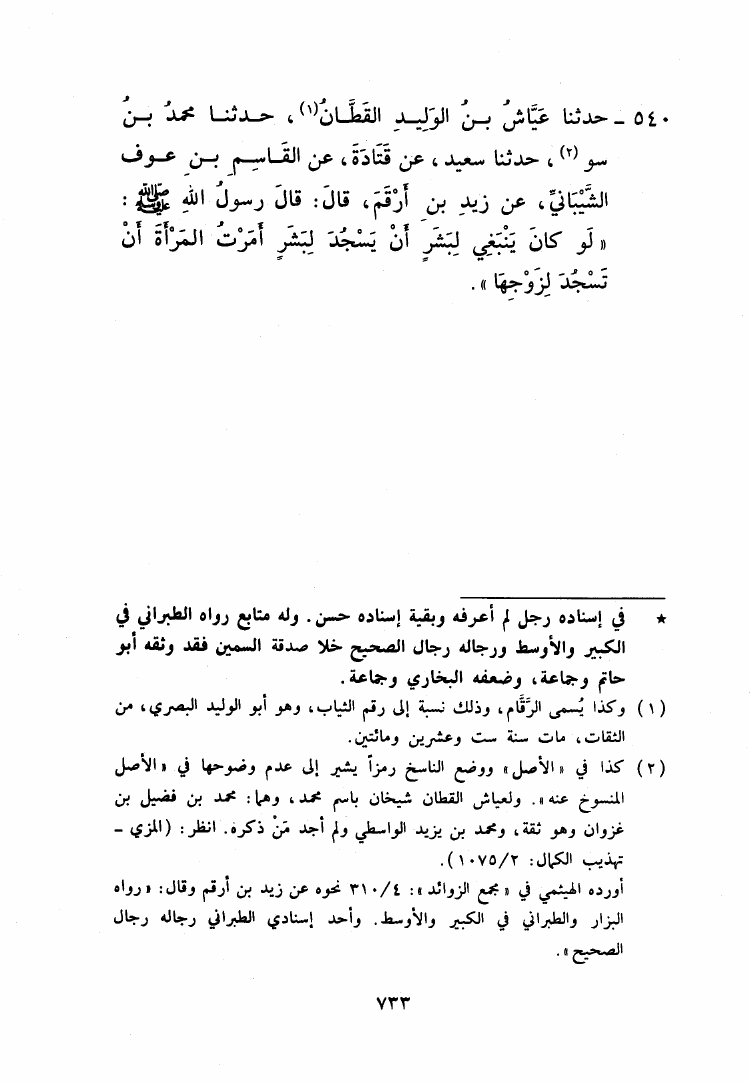 ٥٤٠ - حدثنا عَيَّاشُ بـنُ الوَلِيـدِ القَطَّـانُ(١)، حـدثنـا محمدُ بـنُ
سو (٢)، حدثنا سعيد، عن قَتَادَةَ، عن القَـاسِـمِ بـنِ عـوف
الشَّيْبَانيِّ، عن زيدِ بنِ أَرْقَمَ، قالَ: قالَ رسولُ اللهِ ﷺ :
«لَو كانَ يَنْبَغِي لِبَشَرٍ أَنْ يَسْجُدَ لِبَشَرٍ أَمَرْتُ المَرْأَةَ أَنْ
تَسْجُدَ لِزَوْجِهَا».
★ في إسناده رجل لم أعرفه وبقية إسناده حسن. وله متابع رواه الطبراني في
الكبير والأوسط ورجاله رجال الصحيح خلا صدقة السمين فقد وثقه أبو
حاتم وجماعة، وضعفه البخاري وجماعة.
(١) وكذا يُسمى الرَّقَّام، وذلك نسبة إلى رقم الثياب، وهو أبو الوليد البصري، من
الثقات، مات سنة ست وعشرين ومائتين.
(٢) كذا في «الأصل» ووضع الناسخ رمزاً يشير إلى عدم وضوحها في «الأصل
المنسوخ عنه». ولعياش القطان شيخان باسم محمد، وهما: محمد بن فضيل بن
غزوان وهو ثقة، ومحمد بن يزيد الواسطي ولم أجد مَنْ ذكره. انظر: (المزي -
تهذيب الكمال: ١٠٧٥/٢).
أورده الهيثمي في «مجمع الزوائد»: ٣١٠/٤ نحوه عن زيد بن أرقم وقال: «رواه
البزار والطبراني في الكبير والأوسط. وأحد إسنادي الطبراني رجاله رجال
الصحيح».
٧٣٣